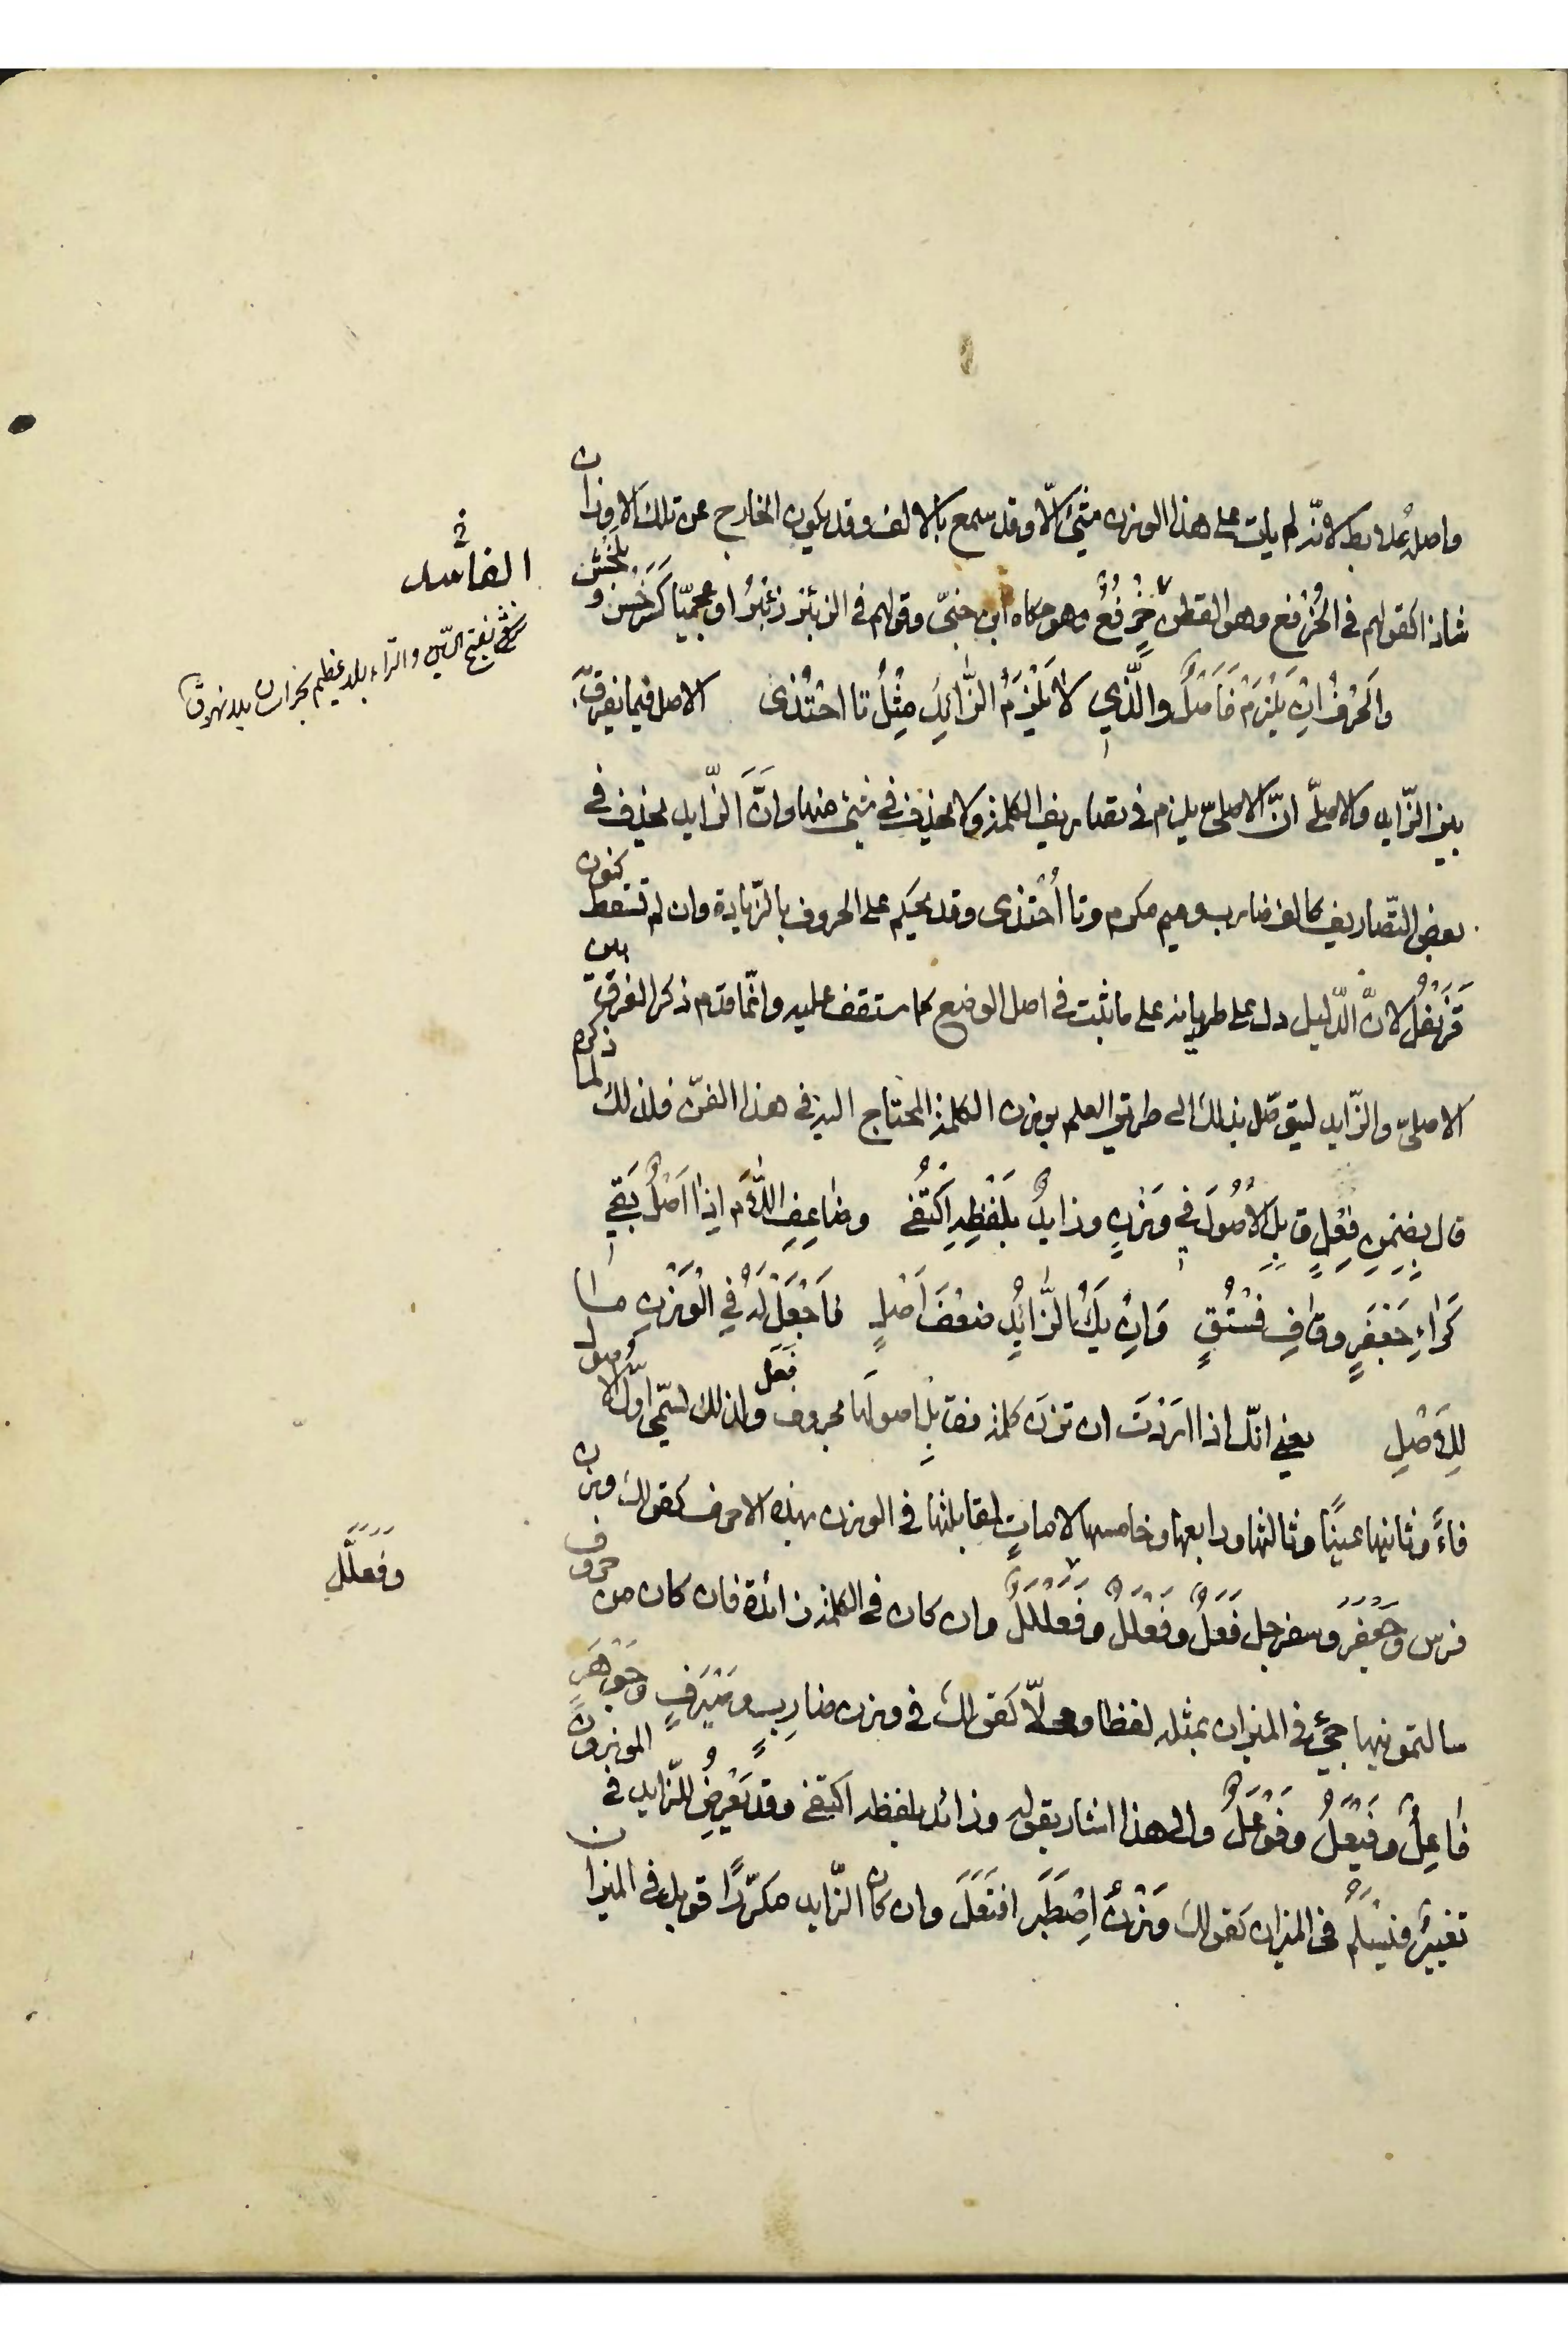 واصله عُلابط لانّه لم يات على هذا الوزن شئ الّا وقد سمع بالالف وقد يكون الخارج عن تلك الاوزان
شاذا كقولهم في الخُرْفع وهو القطن خِرْفُعٌ وهو حكاه ابن جنيّ وقولهم في الزئبر زِئْبُرُ او عجميّا كَسَرَخْس و بلخش
والحَرْفُ اِنْ يَلْزَمْ فَاَصْلٌ والَّذي لا يَلْزَمُ الزّائِدُ مِثْلُ تا احْتُذى الاصل فيما يفرق به
بين الزّايد والاصليّ انّ الاصليّ يلزم في تصاريف الكلمة ولا يحذف في شئ منها وانَّ الزّايد يحذف في
بعض التّصاريف كالف ضارب وميم مكرم وتا اُحْتذى وقد يحكم على الحروف بالزّيادة وان لم تسقط كنون
قَرَنْفُلُ لانَّ الدّليل دل على طريانه على ما ثبت في اصل الوضع كما ستقف عليه وانّما قدم ذكر الفرق بين
الاصليّ والزّايد ليتوصّل بذلك الى طريق العلم بوزن الكلمة المحتاج اليه في هذا الفنّ فلذلك لما ذكره
قال بِضِمْنِ فِعْلٍ قابِلِ الاُصُولَ في وَزْنٍ وزايدٌ بِلَفْظِهِ اكْتُفى وضاعِفِ اللّامَ اِذا اَصْلٌ بَقي
كَراءِ جَعْفَرٍ وقافِ فُسْتُقٍ وَاِنْ يَكُ الزّائِدُ ضِعْفَ اَصْلٍ فَاجْعَلْ لَهُ في الْوَزْنِ ما
لِلاَصْلِ يعني انّك اذا اردْتَ ان تزن كلمة فقابِل اصولَها بحروف فَعَلَ ولذلك لسمّي اوّل الاُصول
فاءً وثانيها عينًا وثالثها ورابعها وخامسها لاماتٍ لمقابلتها في الوزن بهذه الاحرف كقولك وزن
فرس وجَعْفَرَ وسفرجل فَعَلٌ وفَعْلَلٌ وفَعَلْلَلٌ وان كان في الكلمة زائدة فان كان من حروف
سالتمونيها جيء في الميزان بمثله لفظا ومحلّا كقولك في وزن ضارِبٍ وصَيْرَفٍ وجَوْهَرٍ
فاعِلٌ وفَيْعَلٌ وفَوْعَلٌ والى هذا اشار بقوله وزائد بلفظه اكتفى وقد يَعْرِضُ للزّايد في الموزون
تغييرٌ فيَسْلَمُ في الميزان كقولك وَزْنُ اِصْطَبَرَ افتَعَلَ وان كان الزّايد مكرّرًا قوبل في الميزان
وفَعَلَّلٍ